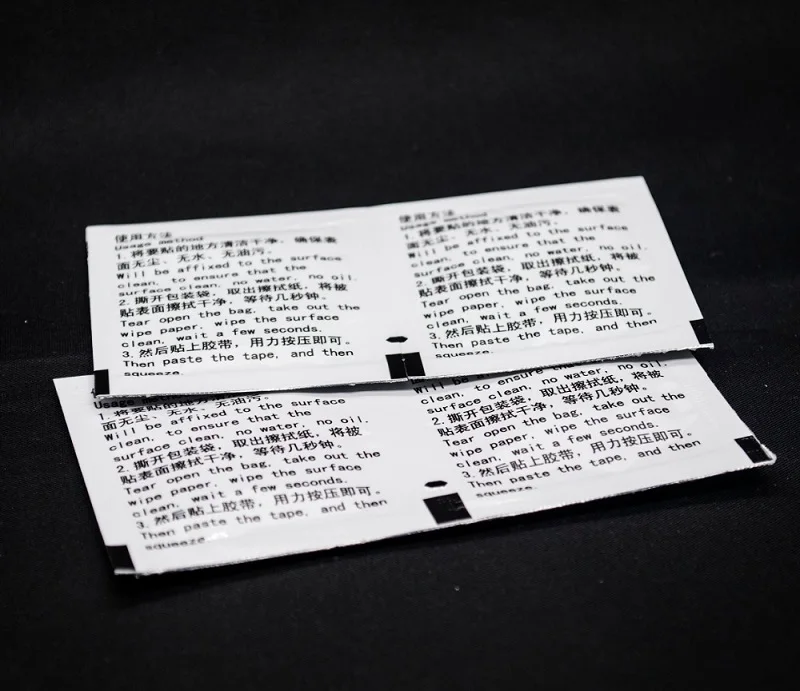 使用方法
Usage method
1.将要贴的地方清洁干净，确保表
面无尘、无水、无油污。
Will be affixed to the surface
clean, to ensure that the
surface clean, no water, no oil.
2.撕开包装袋，取出擦拭纸，将被
贴表面擦拭干净，等待几秒钟。
Tear open the bag, take out the
wipe paper, wipe the surface
clean, wait a few seconds.
3.然后贴上胶带，用力按压即可。
Then paste the tape, and then
squeeze.
使用方法
Usage method
1.将要贴的地方清洁干净，确保表
面无尘、无水、无油污。
Will be affixed to the surface
clean, to ensure that the
surface clean, no water, no oil.
2.撕开包装袋，取出擦拭纸，将被
贴表面擦拭干净，等待几秒钟。
Tear open the bag, take out the
wipe paper, wipe the surface
clean, wait a few seconds.
3.然后贴上胶带，用力按压即可。
Then paste the tape, and then
squeeze.
Usage
1.将要贴的地方清洁
面无尘、无水、无油污。
Will be affixed to the surface
clean, to ensure that the
surface clean, no water, no oil.
2.撕开包装袋，取出擦拭纸，将被
贴表面擦拭干净，等待几秒钟。
Tear open the bag, take out the
wipe paper, wipe the surface
clean, wait a few seconds.
3.然后贴上胶带，用力按压即可。
Then paste the tape, and then
squeeze.
Will be
clean, to ensure that the
surface clean, no water, no oil.
2.撕开包装袋，取出擦拭纸，将被
贴表面擦拭干净，等待几秒钟。
Tear open the bag, take out the
wipe paper, wipe the surface
clean, wait a few seconds.
3.然后贴上胶带，用力按压即可。
Then paste the tape, and then
squeeze.